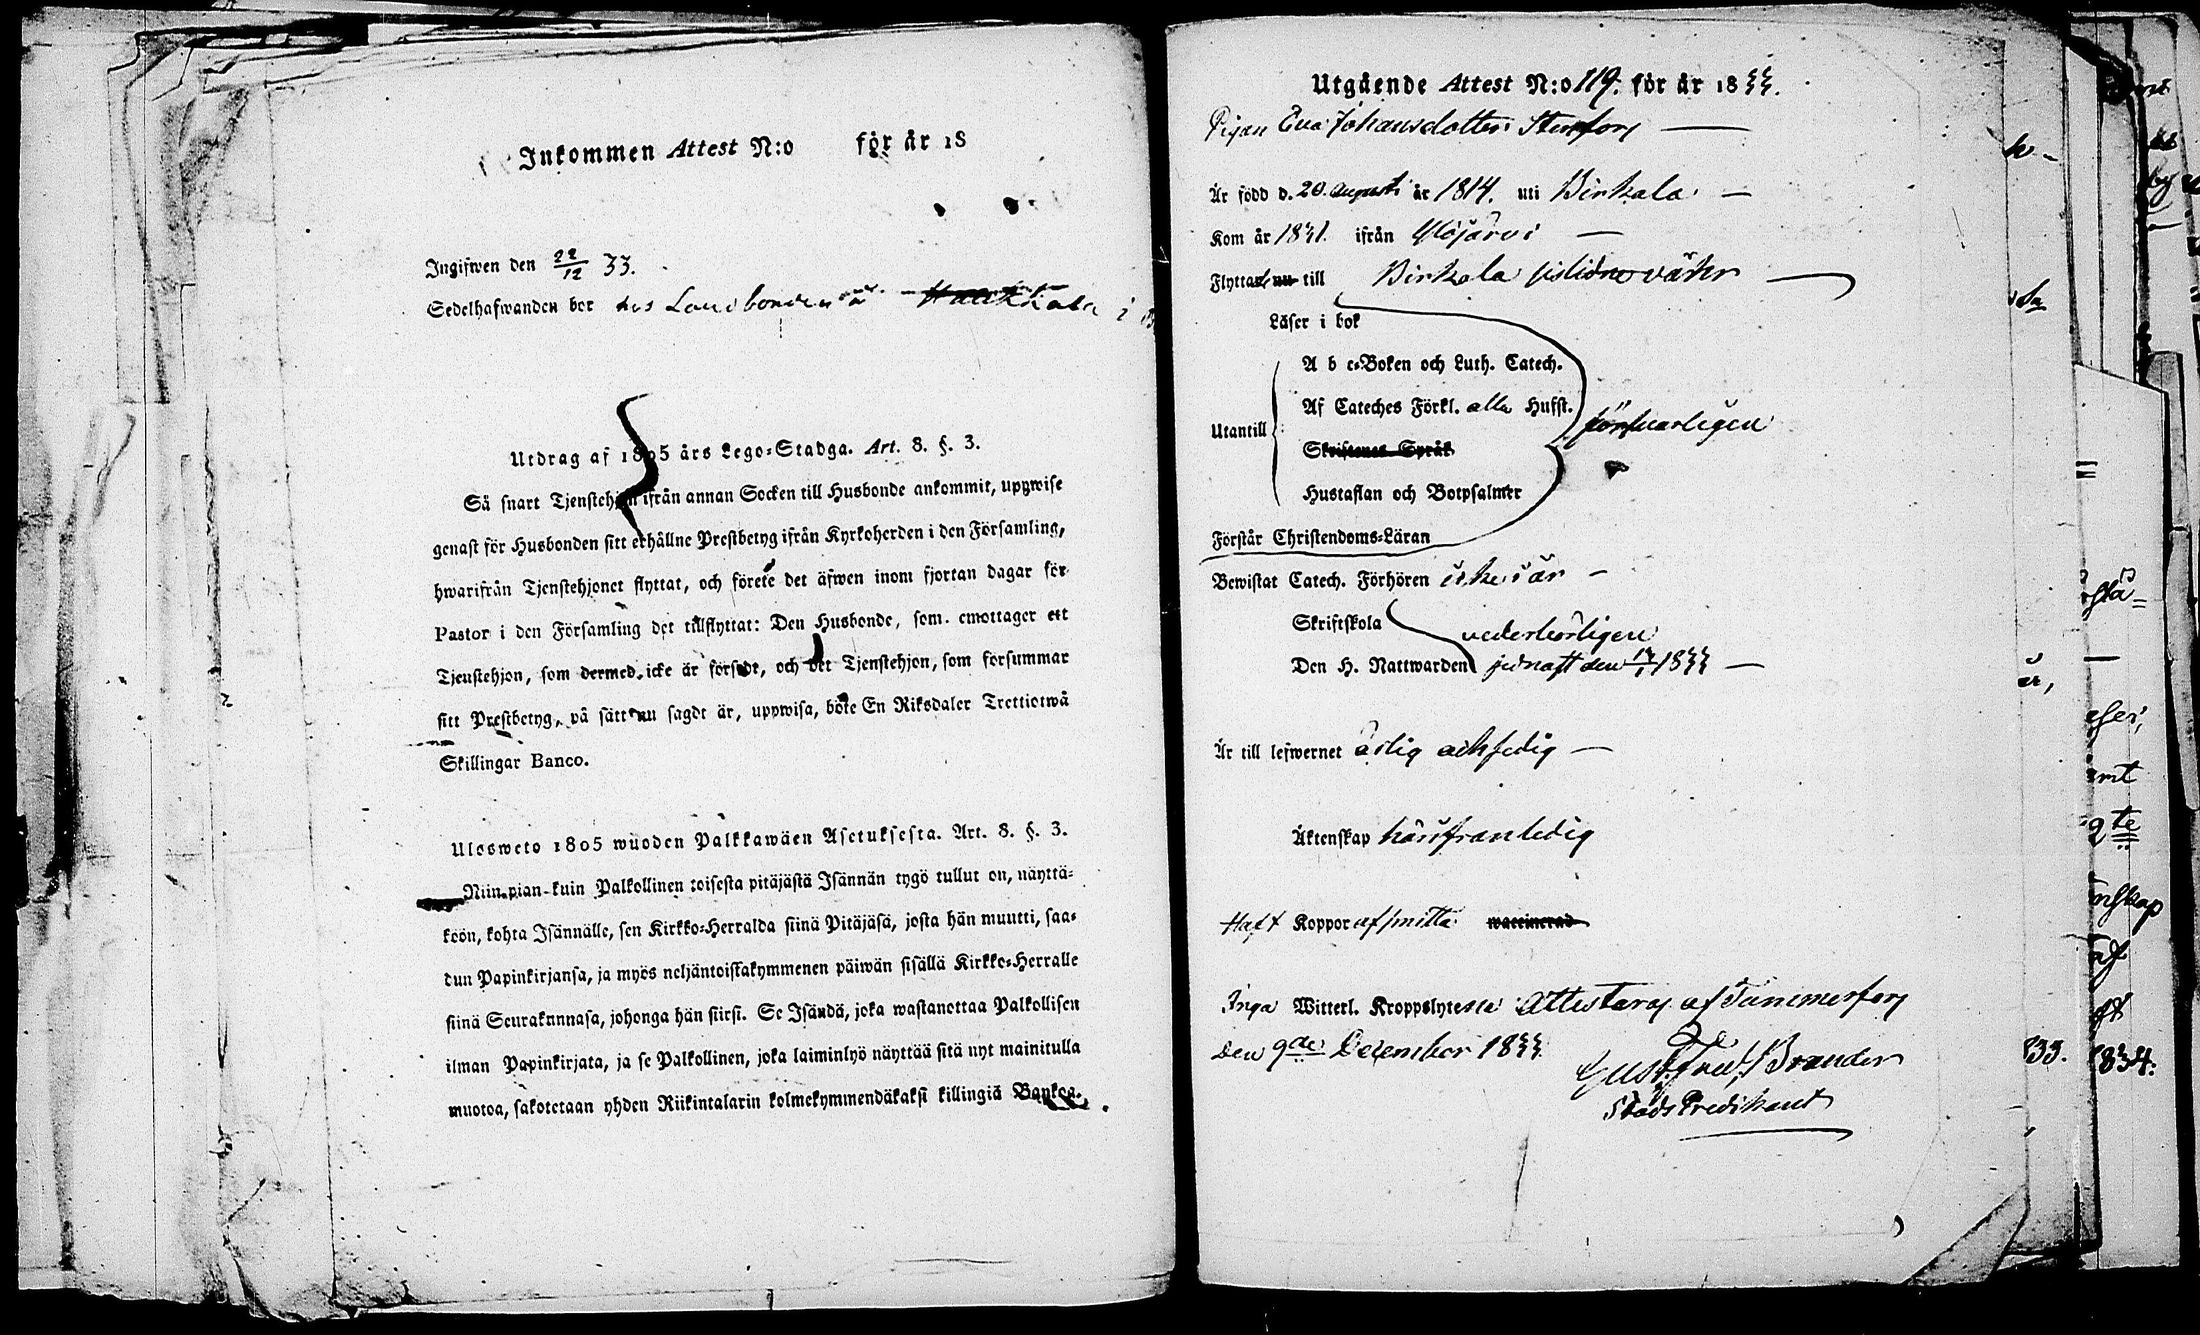 Inkommen Attest N:o för år 18
Ingifwen den 22/12 33.
Sedelhafwanden bor hos Landbonden å i
Utdrag af 1805 års Lego-Stadga. Art. 8. §. 3.
Så snart Tjenstehjon ifrån annan Socken till Husbonde ankommit, uppwise
genast för Husbonden sitt erhållne Prestbetyg ifrån Kyrkoherden i den Församling,
hwarifrån Tjenstehjonet flyttat, och förete det äfwen inom fjortan dagar för
Pastor i den Församling det tillflyttat: Den Husbonde, som emottager ett
Tjenstehjon, som dermed icke är försedt, och det Tjenstehjon, som försummar
sitt Prestbetyg, på sätt nu sagdt är, uppwisa, böte En Riksdaler Trettiotwå
Skillingar Banco.
Ulosweto 1805 wuoden Palkkawäen Asetuksesta. Art. 8. §. 3.
Niin pian kuin Palkollinen toisesta pitäjästä Isännän tygö tullut on, näyttä-
köön, kohta Isännälle, sen Kirkko-Herralda siinä Pitäjäsä, josta hän muutti, saa-
dun Papinkirjansa, ja myös neljäntoistakymmenen päiwän sisällä Kirkko-Herralle
siinä Seurakunnasa, johonga hän siirsi. Se Isändä, joka wastanottaa Palkollisen
ilman Papinkirjata, ja se Palkollinen, joka laiminlyö näyttää sitä nyt mainitulla
muotoa, sakotetaan yhden Riikintalarin kolmekymmendäkaksi killingiä Bankoa.
Utgående Attest N:o 119. för år 1833.
Pigan Eva Johansdotter Stenfors
Är född d. 20. Augusti år 1814. uti Birkala
Kom år 1831. ifrån Ylöjärvi
Flyttar nu till Birkala
Läser i bok
A b c-Boken och Luth. Catech.
Af Cateches Förkl. alla Husst.
Utantill försvarligen
Skriftenes Språk
Hustaflan och Botpsalmer
Förstår Christendoms-Läran
Bewistat Catech. Förhören icke i år
Skriftskola vederbörligen
Den H. Nattwarden sednast den 1833
Är till lefwernet ärlig och sedig
Äktenskap härifrån ledig
Haft Koppor af smitta waccinerad
Inga Witterl. Kroppslyten Attesteras af Tammerfors
den 9de December 1833.
Gust. Fred. Brander
Stads Predikant
33.
1834.